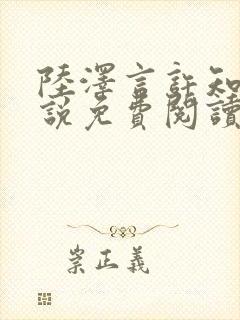 陸澤言許知
說免費閱讀
崇正義